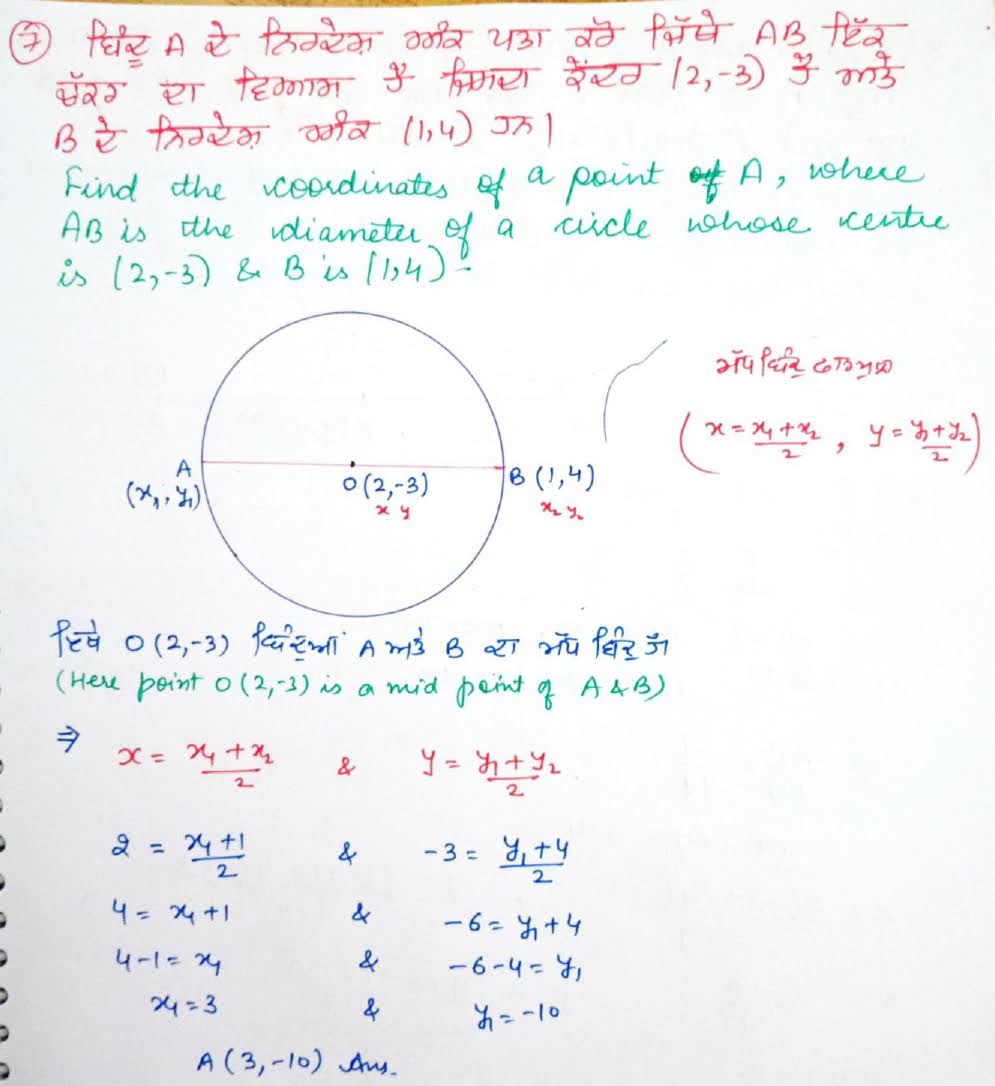 ⑦ ਬਿੰਦੂ A ਦੇ ਨਿਰਦੇਸ਼ ਅੰਕ ਪਤਾ ਕਰੋ ਜਿੱਥੇ AB ਇੱਕ
ਚੱਕਰ ਦਾ ਵਿਆਸ ਹੈ ਜਿਸਦਾ ਕੇਂਦਰ (2,-3) ਹੈ ਅਤੇ
B ਦੇ ਨਿਰਦੇਸ਼ ਅੰਕ (1,4) ਹਨ।
Find the coordinates of a point A, where
AB is the diameter of a circle whose centre
is (2,-3) & B is (1,4).
ਮੱਧ ਬਿੰਦੂ ਫਾਰਮੂਲਾ
(x = x₁+x₂/2 , y = y₁+y₂/2)
A
(x₁, y₁)
O (2,-3)
x y
B (1,4)
x₂ y₂
ਇੱਥੇ O (2,-3) ਬਿੰਦੂਆਂ A ਅਤੇ B ਦਾ ਮੱਧ ਬਿੰਦੂ ਹੈ
(Here point O (2,-3) is a mid point of A & B)
⇒ x = x₁+x₂/2 & y = y₁+y₂/2
2 = x₁+1/2 & -3 = y₁+4/2
4 = x₁+1 & -6 = y₁+4
4-1 = x₁ & -6-4 = y₁
x₁ = 3 & y₁ = -10
A (3,-10) Ans.